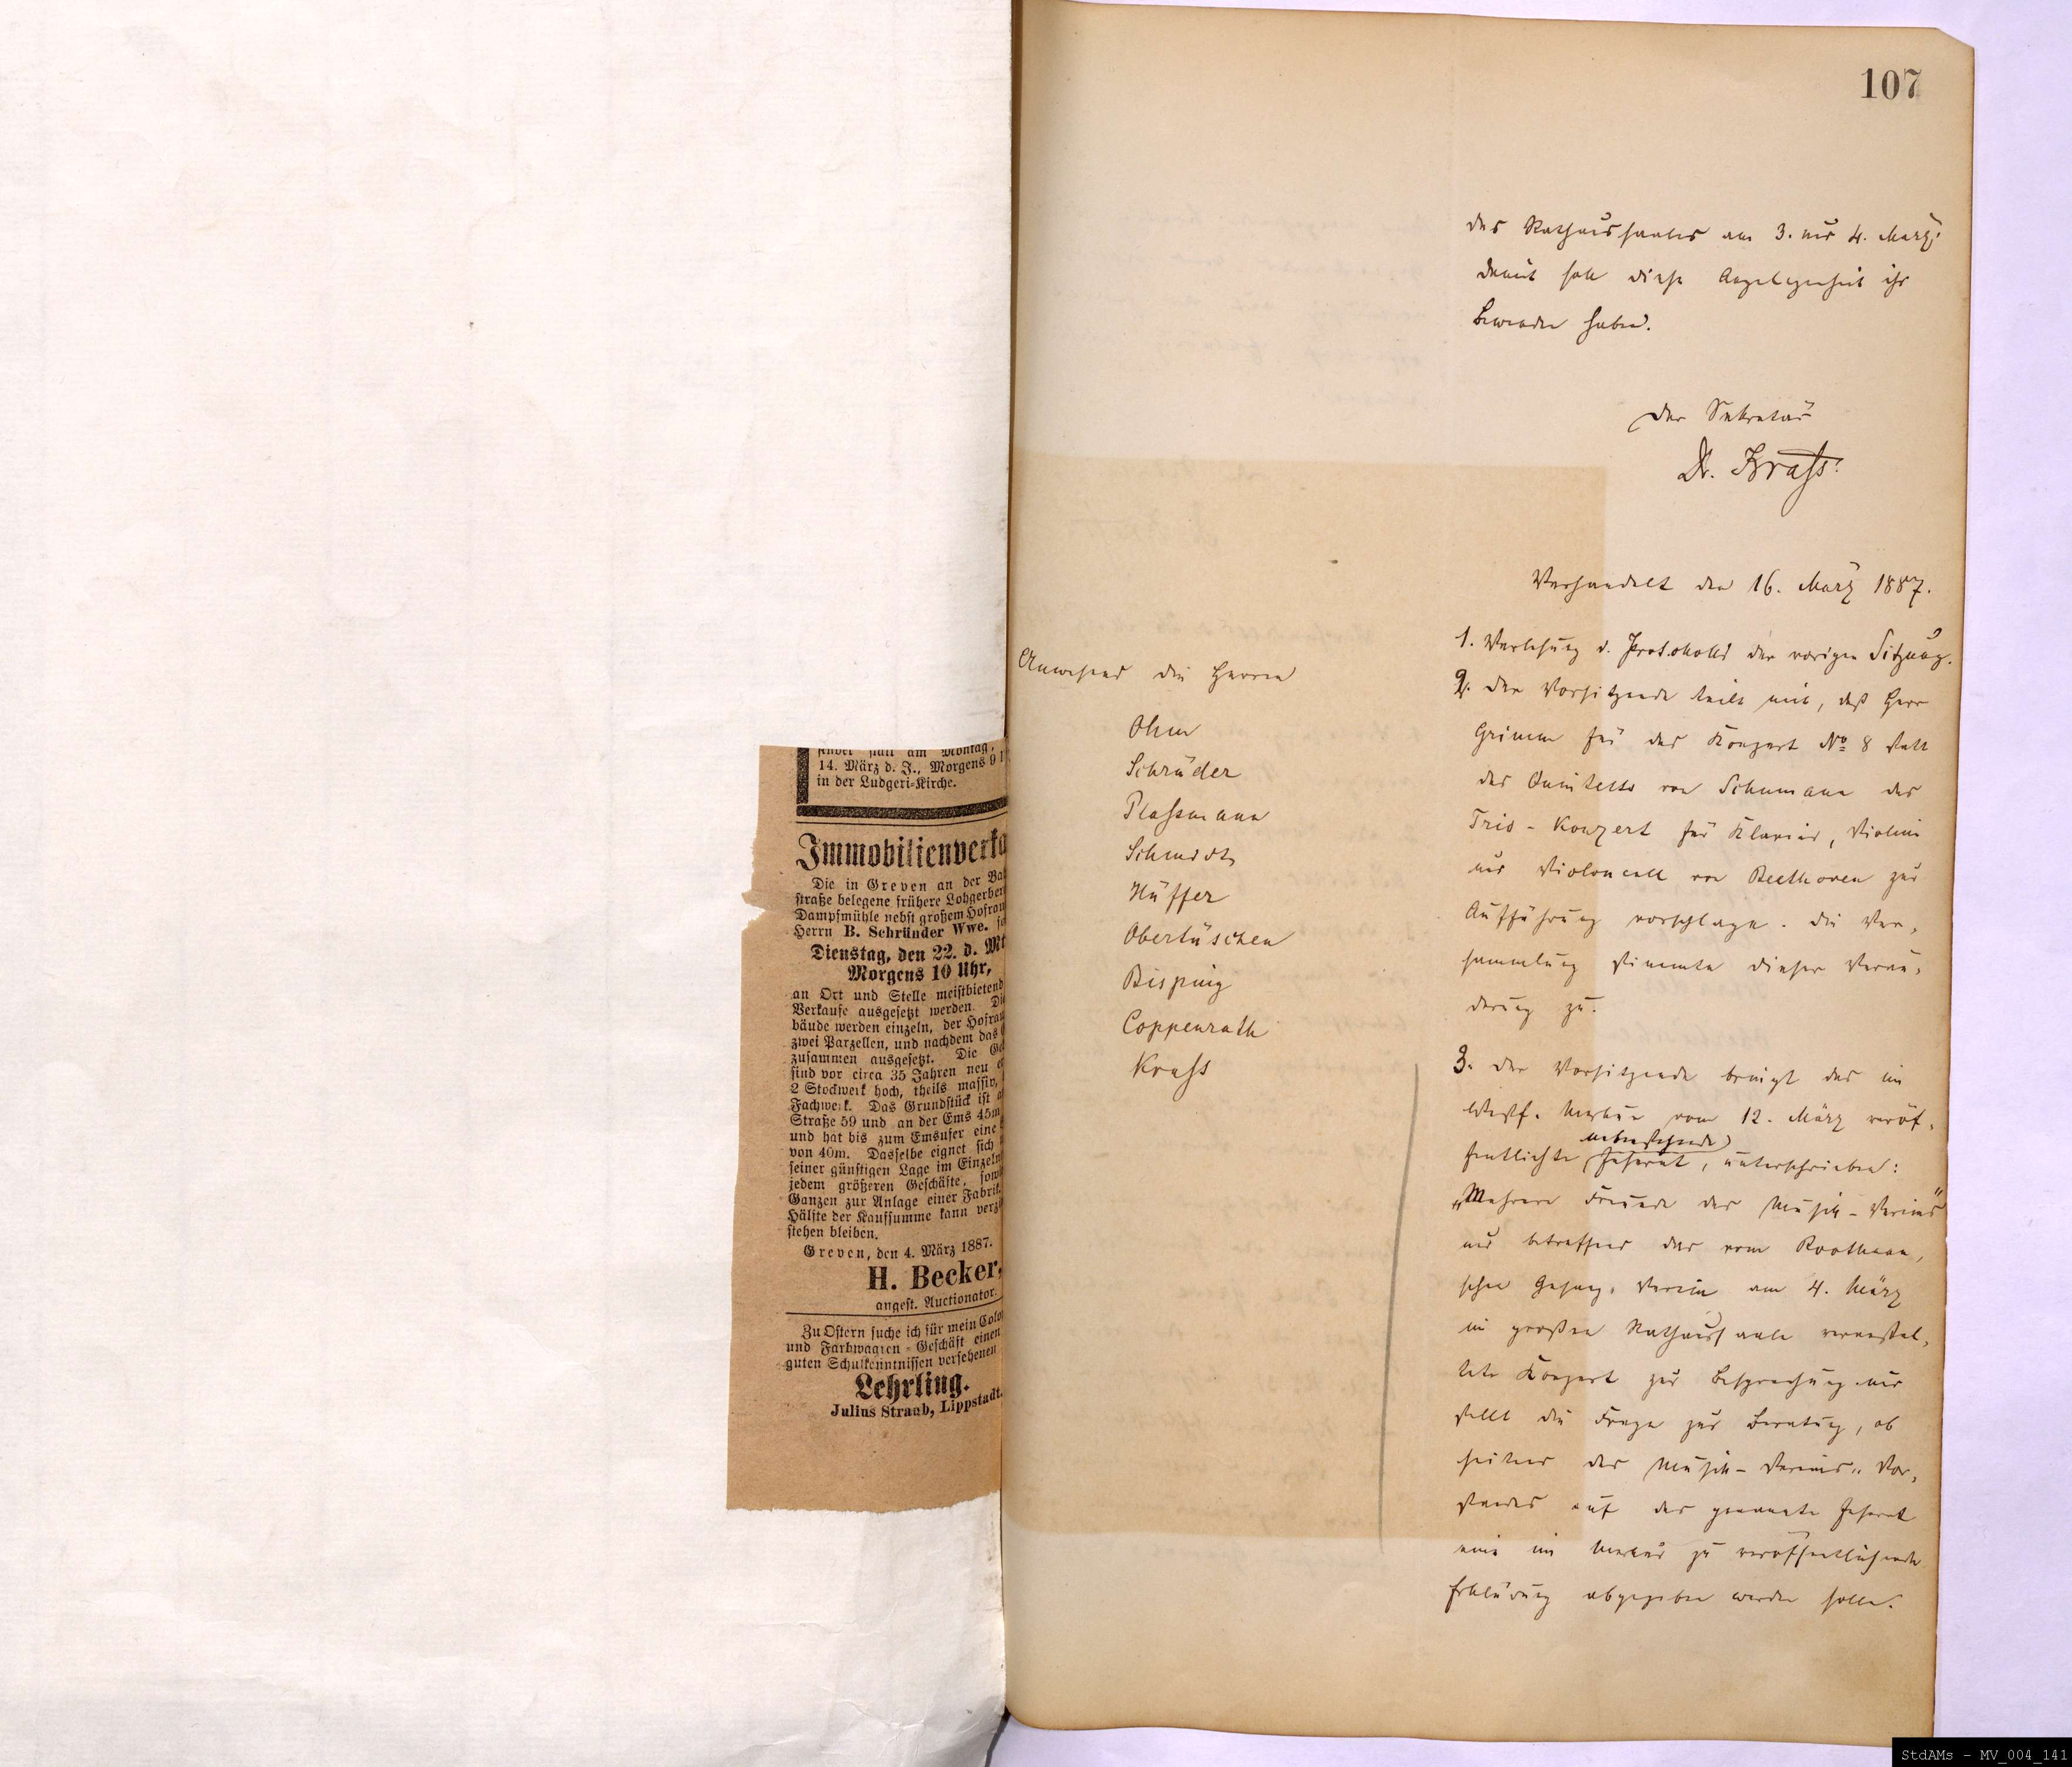 findet statt am Montag,
14. März d. J., Morgens 9
in der Ludgeri-Kirche.
Immobilienverka
Die in Greven an der Ba
straße belegene frühere Lohgerber
Dampfmühle nebst großem Hofrau
Herrn B. Schründer Wwe.
Dienstag, den 22. d. Mt
Morgens 10 Uhr,
an Ort und Stelle meistbietend
Verkaufe ausgesetzt werden. Di
bäude werden einzeln, der Hofrau
zwei Parzellen, und nachdem das
zusammen ausgesetzt. Die Ge
sind vor circa 35 Jahren neu
2 Stockwerk hoch, theils massiv,
Fachwerk. Das Grundstück ist a
Straße 59 und an der Ems 45m
und hat bis zum Emsufer eine
von 40m. Dasselbe eignet sich
seiner günstigen Lage im Einzeln
jedem größeren Geschäfte, sow
Ganzen zur Anlage einer Fabrik.
Hälfte der Kaufsumme kann verzi
stehen bleiben.
Greven, den 4. März 1887.
H. Becker,
angest. Auctionator.
Zu Ostern suche ich für mein Colo
und Farbwaaren-Geschäft einen
guten Schulkenntnissen versehenen
Lehrling.
Julius Straub, Lippstadt.
107
des Rathaussaales am 3. und 4. März;
damit soll diese Angelegenheit ihr
Bewenden haben.
Der Sekretär
Dr. Krass.
Verhandelt den 16. März 1887.
Anwesend die Herren
Ohm
Schrüder
Plassmann
Schmidt
Hüffer
Obertüschen
Bisping
Coppenrath
Krass
1. Verlesung d. Protokolls der vorigen Sitzung.
2. Der Vorsitzende teilt mit, daß Herr
Grimm für das Konzert No 8 statt
des Quintetts von Schumann das
Trio-Konzert für Klavier, Violine
und Violoncell von Beethoven zur
Aufführung vorschlage. Die Ver-
sammlung stimmte dieser Verän-
derung zu.
3. Der Vorsitzende bringt das im
Westf. Merkur vom 12. März veröf-
nebenstehende
fentlichte Inserat, unterschrieben:
„Mehrere Freunde des Musik-Vereins"
und betreffend das vom Roothaan-
schen Gesang-Verein am 4. März
im großen Rathaussaale veranstal-
tete Konzert zur Besprechung und
stellt die Frage zur Beratung, ob
seitens des Musik-Vereins-Vor-
standes auf das genannte Inserat
eine im Merkur zu veröffentlichende
Erklärung abgegeben werden solle.
StdAMs - MV_004_141